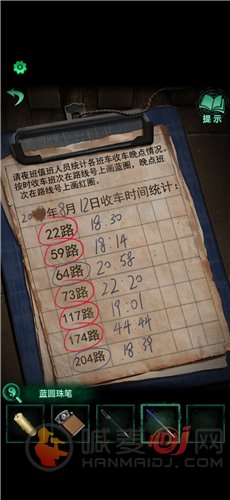 提示
请夜班值班人员统计各班车收车晚点情况,
按时收车班次在路线号上画蓝圈,晚点班
次在路线号上画红圈.
年8月12日收车时间统计:
22路 18.30
59路 18:14
64路 20.58
73路 22 20
117路 19:01
174路 44 44
204路 18
蓝圆珠笔
嗨麦手机网
HANMAIDJ.COM